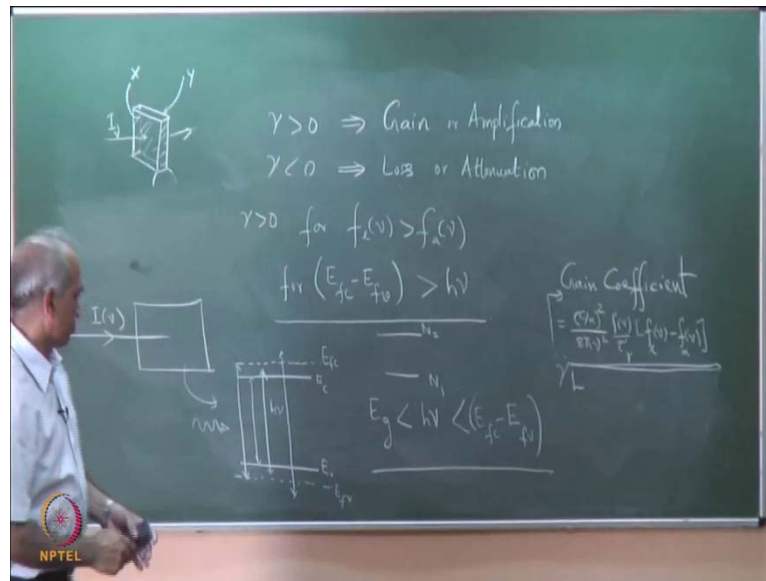 X Y
I_ν
γ > 0 ⇒ Gain or Amplification
γ < 0 ⇒ Loss or Attenuation
γ > 0 for f_e(ν) > f_a(ν)
for (E_fc - E_fv) > hν
I(ν)
N_2
N_1
E_fc
E_c
hν
E_v
E_fv
E_g < hν < (E_fc - E_fv)
Gain Coefficient
= (c/n)² / 8πν² ρ(ν) / τ_r [f_e(ν) - f_a(ν)]
γ
L
NPTEL